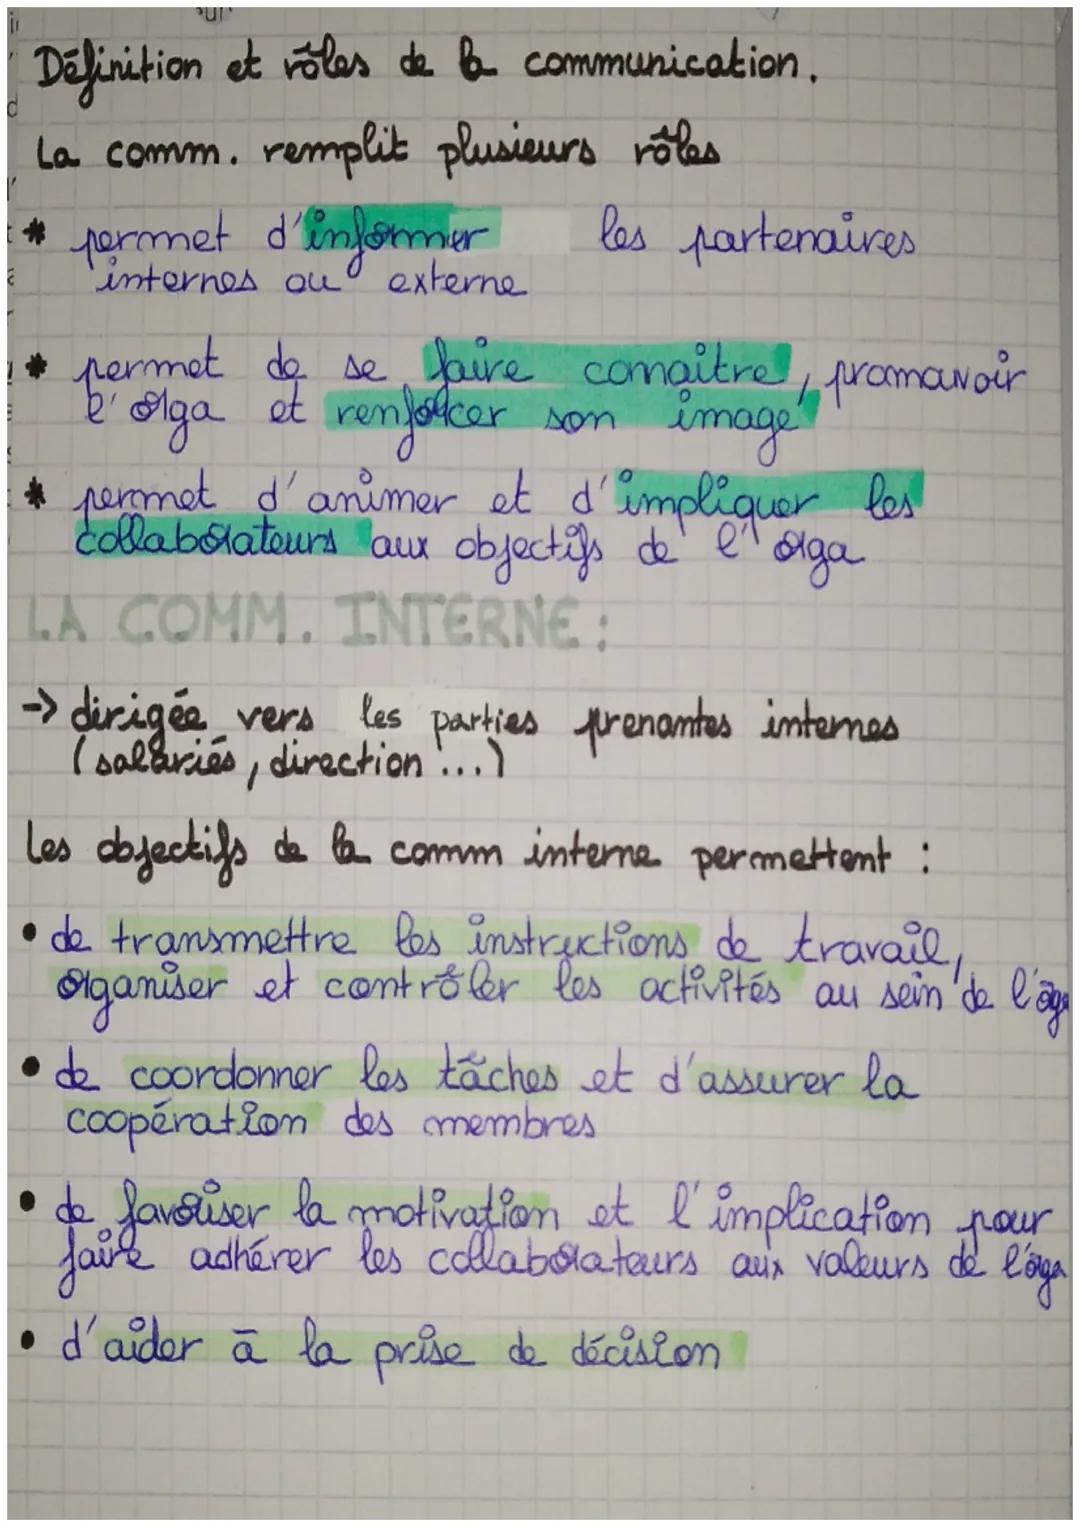 Définition et rôles de la communication.
La comm. remplit plusieurs rôles
* permet d'informer les partenaires
internes ou externe
* permet de se faire connaître, promouvoir
l'orga et renforcer son image
* permet d'animer et d'impliquer les
collaborateurs aux objectifs de l'orga
LA COMM. INTERNE :
-> dirigée vers les parties prenantes internes
(salariés, direction ...)
Les objectifs de la comm interne permettent :
• de transmettre les instructions de travail,
organiser et contrôler les activités au sein de l'orga
• de coordonner les tâches et d'assurer la
coopération des membres
• de favoriser la motivation et l'implication pour
faire adhérer les collaborateurs aux valeurs de l'orga
• d'aider à la prise de décision